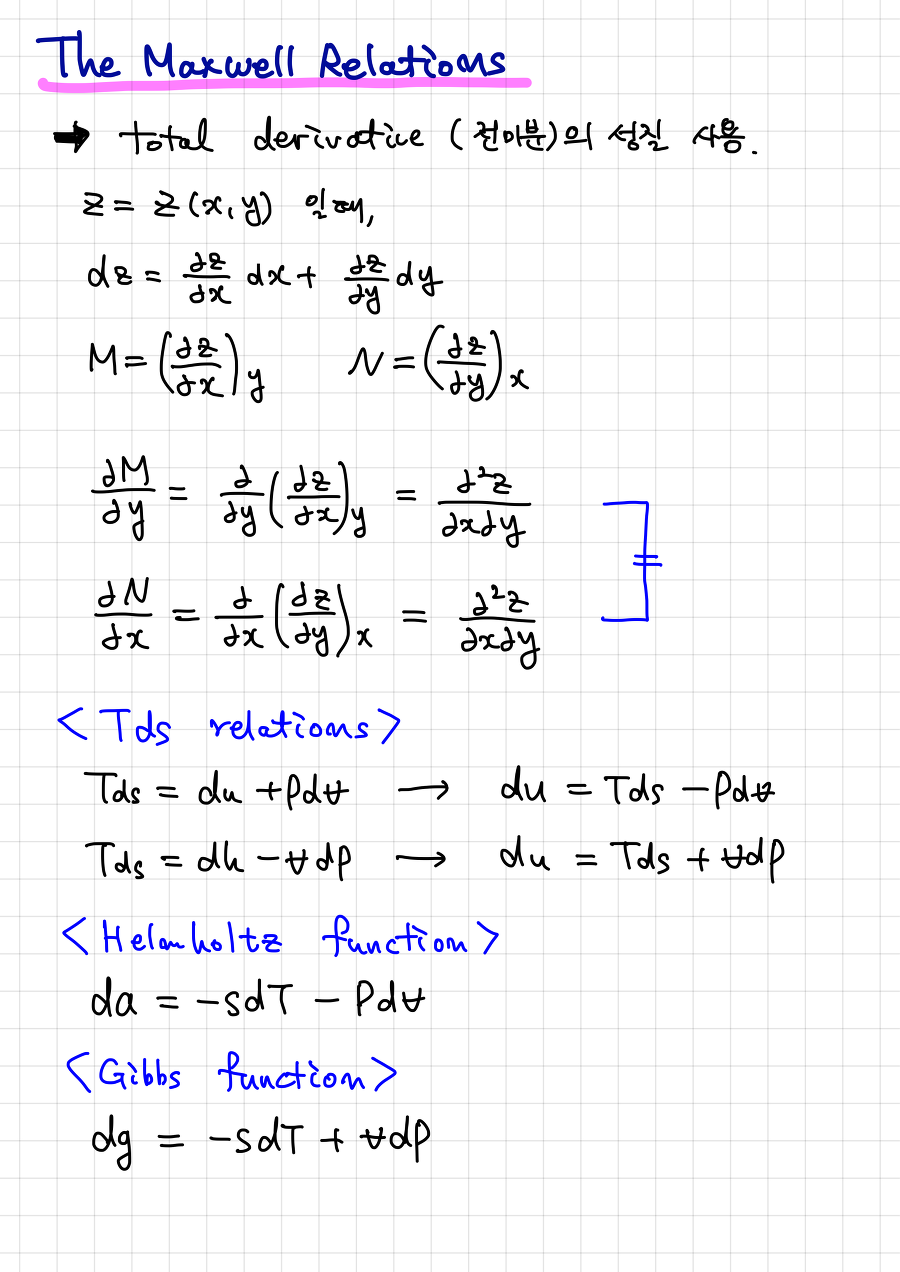 The Maxwell Relations
➡ total derivative (전미분)의 성질 사용.
z = z(x, y) 일때,
dz = ∂z/∂x dx + ∂z/∂y dy
M = (∂z/∂x)y N = (∂z/∂y)x
∂M/∂y = ∂/∂y (∂z/∂x)y = ∂²z/∂x∂y
=
∂N/∂x = ∂/∂x (∂z/∂y)x = ∂²z/∂x∂y
<Tds relations>
Tds = du + Pdv → du = Tds - Pdv
Tds = dh - vdP → du = Tds + vdP
<Helmholtz function>
da = -sdT - Pdv
<Gibbs function>
dg = -sdT + vdP